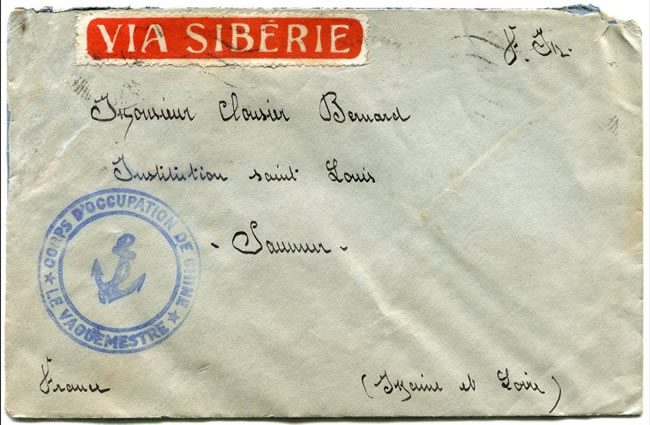 VIA SIBÉRIE
F. M.
Monsieur Clausier Bernard
Institution saint Louis
- Saumur -
CORPS D'OCCUPATION DE CHINE
★ LE VAGUEMESTRE ★
France
(Maine et Loire)